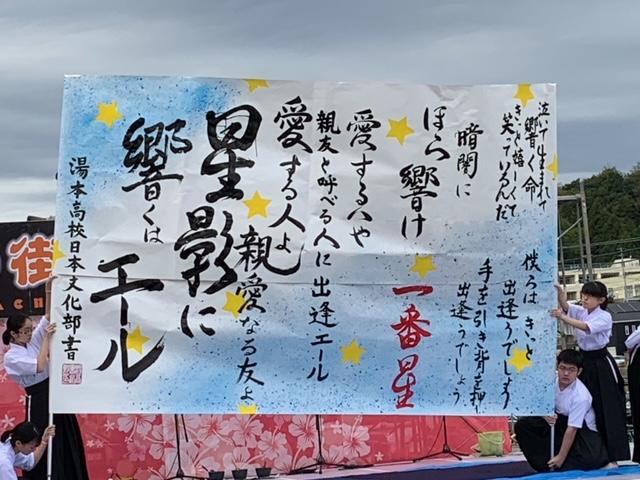 泣いて生まれて
響く命
きっと嬉しくて
笑っているんだ
僕らはきっと
出逢うでしょう
手を引き背を押し
出逢うでしょう
暗闇に
ほら響け
一番星
愛する人や
親友と呼べる人に出逢エール
愛する人よ
親愛なる友よ
星影に
響くは
エール
湯本高校日本文化部書
街